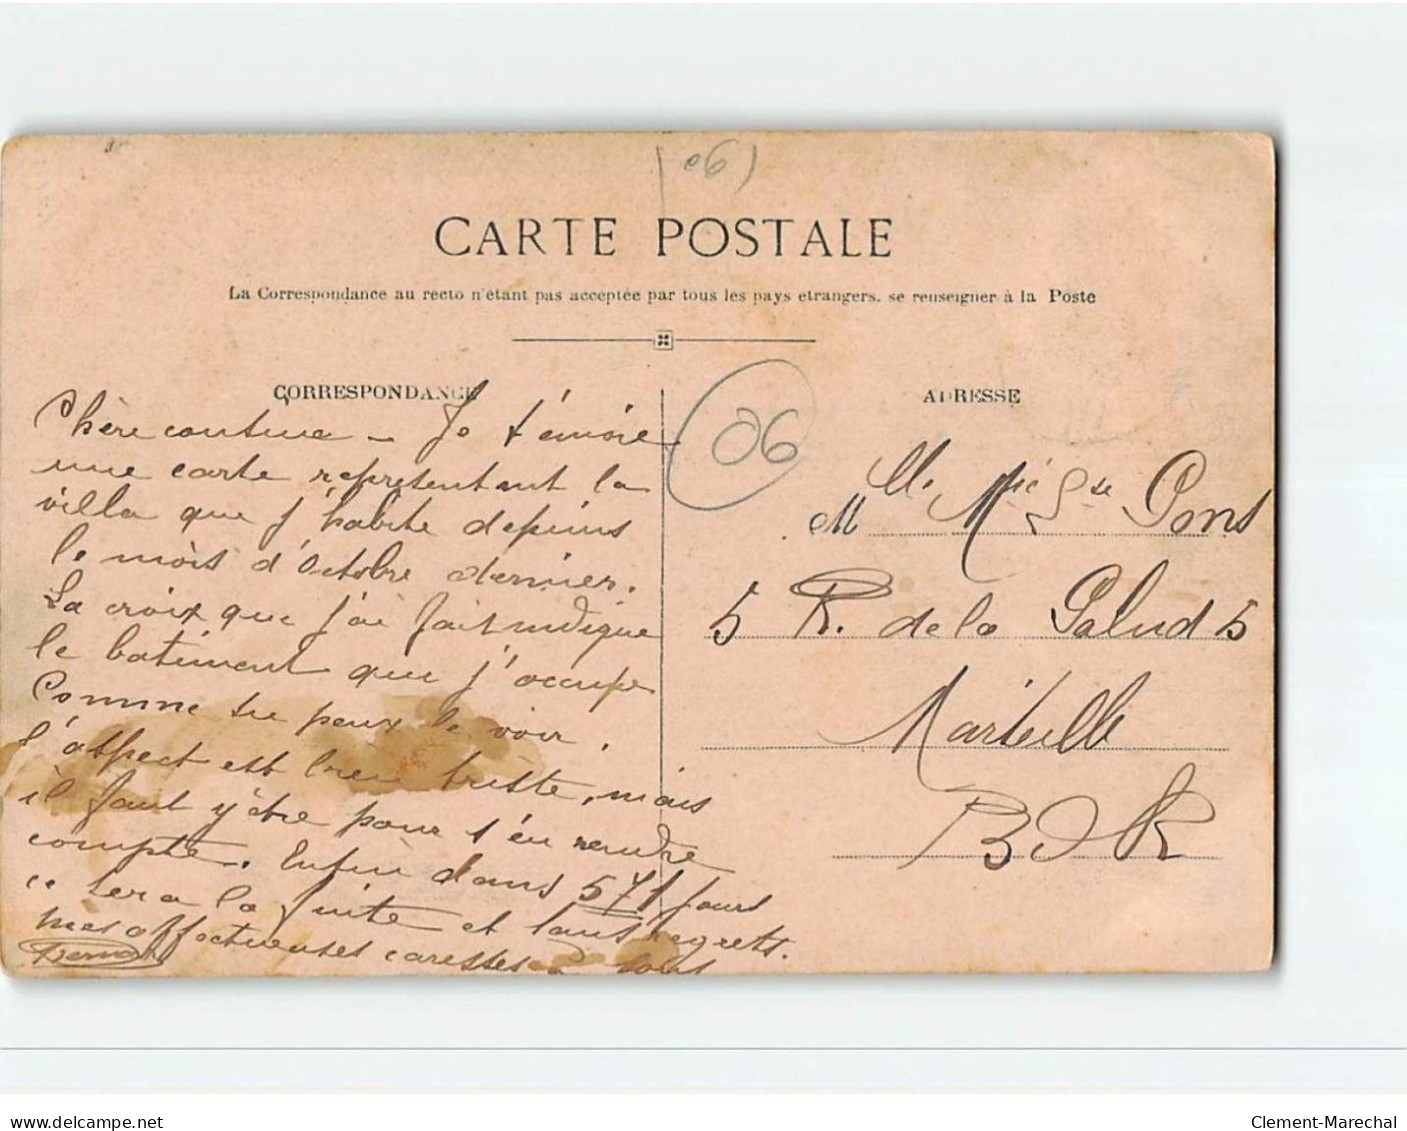 (06)
CARTE POSTALE
La Correspondance au recto n'étant pas acceptée par tous les pays etrangers, se renseigner à la Poste
CORRESPONDANCE
Chère cousine _ Je t'envoie
une carte representant la
villa que j'habite depuis
le mois d'Octobre dernier.
La croix que j'ai fait indique
le batiment que j'occupe
Comme tu peux le voir,
l'aspect est bien triste, mais
il faut y être pour s'en rendre
compte. Enfin dans 571 jours
ce sera la fuite et sans regrets.
mes affectueuses caresses à tous
06
ADRESSE
M Mlle Pons
5 R. de la Palud 5
Marseille
B D R
Clement-Marechal
www.delcampe.net